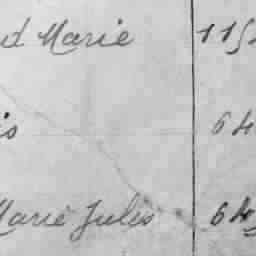 d Marie 115
is 64
Marie Jules 64